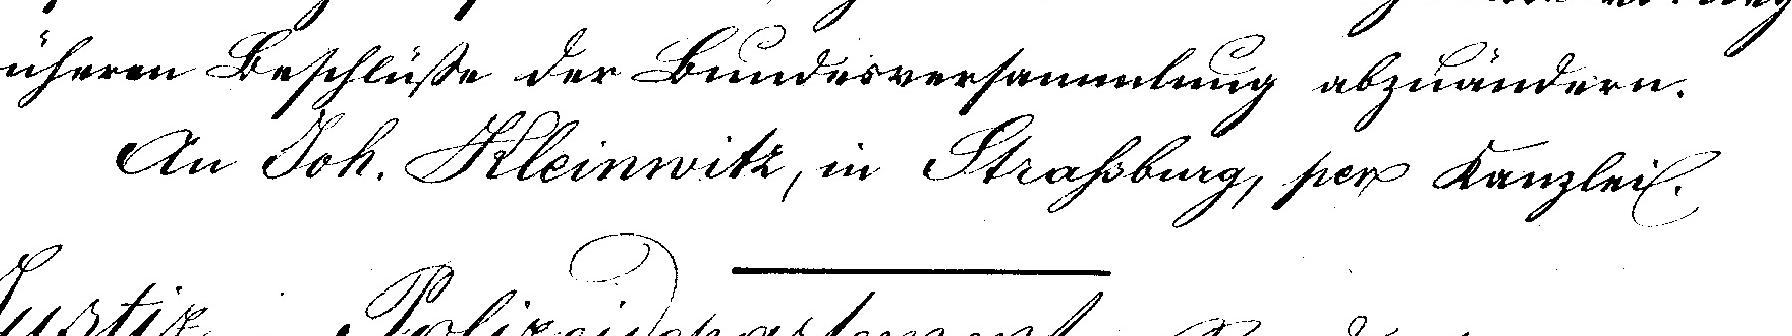 üheren Beschlüße der Bundesversammlung abzuändern.
An Joh. Kleinwitz, in Straßburg, per Kanzlei.
Justiz- Polizeidepartement